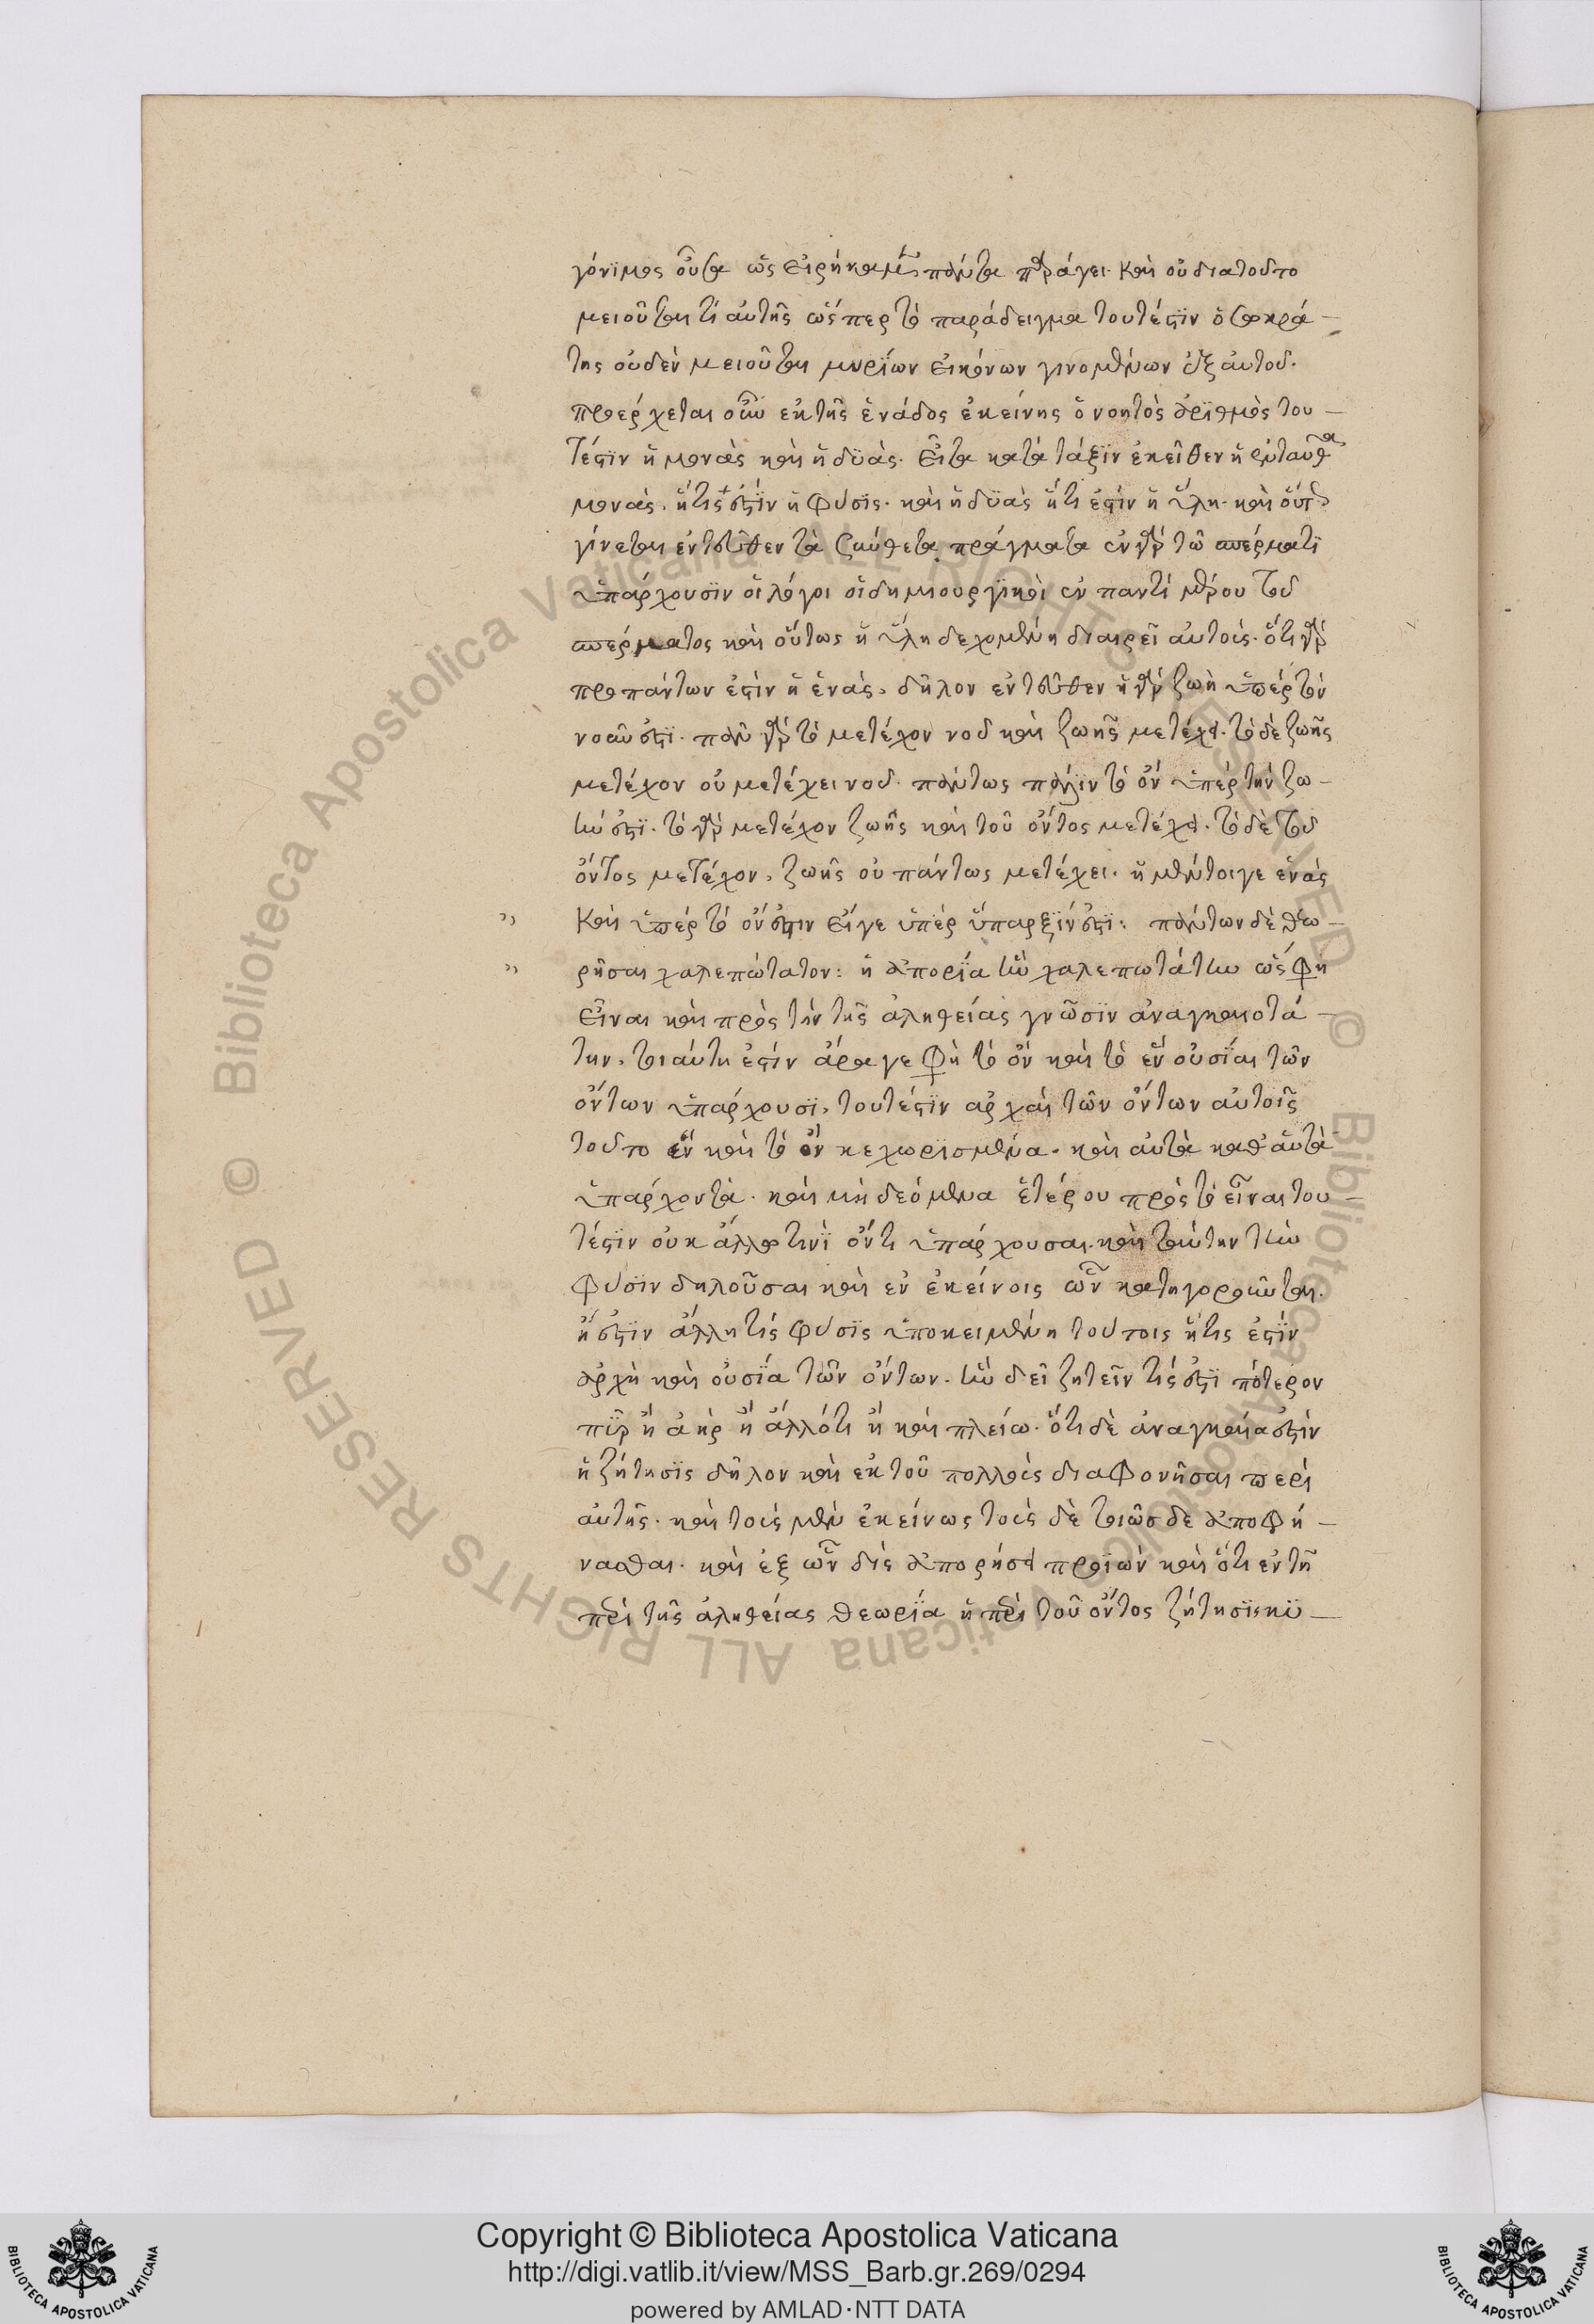 γόνϊμος οὖσα ὡς εἰρήκαμεν πάντα παράγει. καὶ οὐ διατοῦτο
μειοῦται τί αὐτῆς ὥςπερ τὸ παράδειγμα τουτέστϊν ὁ σωκρά –
της οὐδὲν μειοῦται μυρΐων εἰκόνων γινομένων ἐξ αὐτοῦ.
προέρχεται οὖν ἐκ τῆς ἑνάδος ἐκείνης ὁ νοητὸς ἀρϊθμὸς του –
τέστϊν ἡ μονὰς καὶ ἡ δϋάς. εἶτα κατὰ τάξϊν ἐκεῖθεν ἡ ἐνταῦθα
μονὰς. ἥτις ἐστϊν ἡ φύσϊς. καὶ ἡ δϋὰς ἥτις ἐστὶν ἡ ὕλη. καὶ οὕτως
γίνεται ἐντεῦθεν τὰ σύνθετα πράγματα ἐν γὰρ τῶ σπέρματϊ
ὑπάρχουσϊν οἱ λόγοι οἱ δημιουργϊκοὶ ἐν παντὶ μέρου τοῦ
σπέρματος καὶ οὕτως ἡ ὕλη δεχομένη διαιρεῖ αὐτοὺς. ὅτι γὰρ
προπάντων ἐστὶν ἡ ἑνὰς, δῆλον ἐντεῦθεν ἡ γὰρ ζωὴ ὑπὲρ τὸν
νοῦν ἐστϊ. πᾶν γὰρ τὸ μετέχον νοῦ καὶ ζωῆς μετέχει. τὸ δὲ ζωῆς
μετέχον οὐ μετέχει νοῦ πάντως πάλϊν τὸ ὂν ὑπὲρ τὴν ζω –
ήν ἐστϊ. τὸ γὰρ μετέχον ζωῆς καὶ τοῦ ὄντος μετέχει. τὸ δὲ τοῦ
ὄντος μετέχον, ζωῆς οὐ πάντως μετέχει. ἡ μέντοιγε ἑνὰς
καὶ ὑπὲρ τὸ ὄν ἐστιν εἴγε ὑπὲρ ὕπαρξϊν ἐστϊ: πάντων δὲ θεω –
ρῆσαι χαλεπώτατον: ἡ ἀπορΐα ἣν χαλεπωτάτην ὥς φη
εἶναι καὶ πρὸς τὴν τῆς ἀληθείας γνῶσϊν ἀναγκαιοτά –
την, τοιαύτη ἐστὶν ἄρα γε φη τὸ ὂν καὶ τὸ ἓν οὐσΐαι τῶν
ὄντων ὑπάρχουσϊ, τουτέστϊν ἀρχαὶ τῶν ὄντων αὐτοῖς
τοῦτο ἓν καὶ τὸ ὂν κεχωρϊσμένα. καὶ αὐτὰ καθ' αὑτὰ
ὑπάρχοντα. καὶ μὴ δεόμενα ἑτέρου πρὸς τὸ εἶναι του –
τέστϊν οὐκ ἄλλο τινϊ ὄντι ὑπάρχουσαι. καὶ ταύτην τὴν
φύσϊν δηλοῦσαι καὶ ἐν ἐκείνοις ὧν κατηγοροῦνται.
ἢ ἐστϊν ἄλλη τὶς φύσϊς ὑποκειμένη τούτοις ἥτις ἐστϊν
ἀρχὴ καὶ οὐσΐα τῶν ὄντων. ἣν δεῖ ζητεῖν τίς ἐστϊ πότερον
πῦρ ἢ ἀὴρ ἢ ἄλλότι ἢ καὶ πλείω. ὅτι δὲ ἀναγκαία ἐστϊν
ἡ ζήτησϊς δῆλον καὶ ἐκ τοῦ πολλοὺς διαφονῆσαι περὶ
αὐτῆς. καὶ τοὺς μὲν ἐκείνως τοὺς δὲ τοιῶσδε ἀποφή –
νασθαι. καὶ ἐξ ὧν δὲ ἀπορήσει προϊὼν καὶ ὅτι ἐν τῆ
περὶ τῆς ἀληθείας θεωρΐα ἡ περὶ τοῦ ὄντος ζήτησϊς κϋ –
Copyright © Biblioteca Apostolica Vaticana
http://digi.vatlib.it/view/MSS_Barb.gr.269/0294
powered by AMLAD·NTT DATA